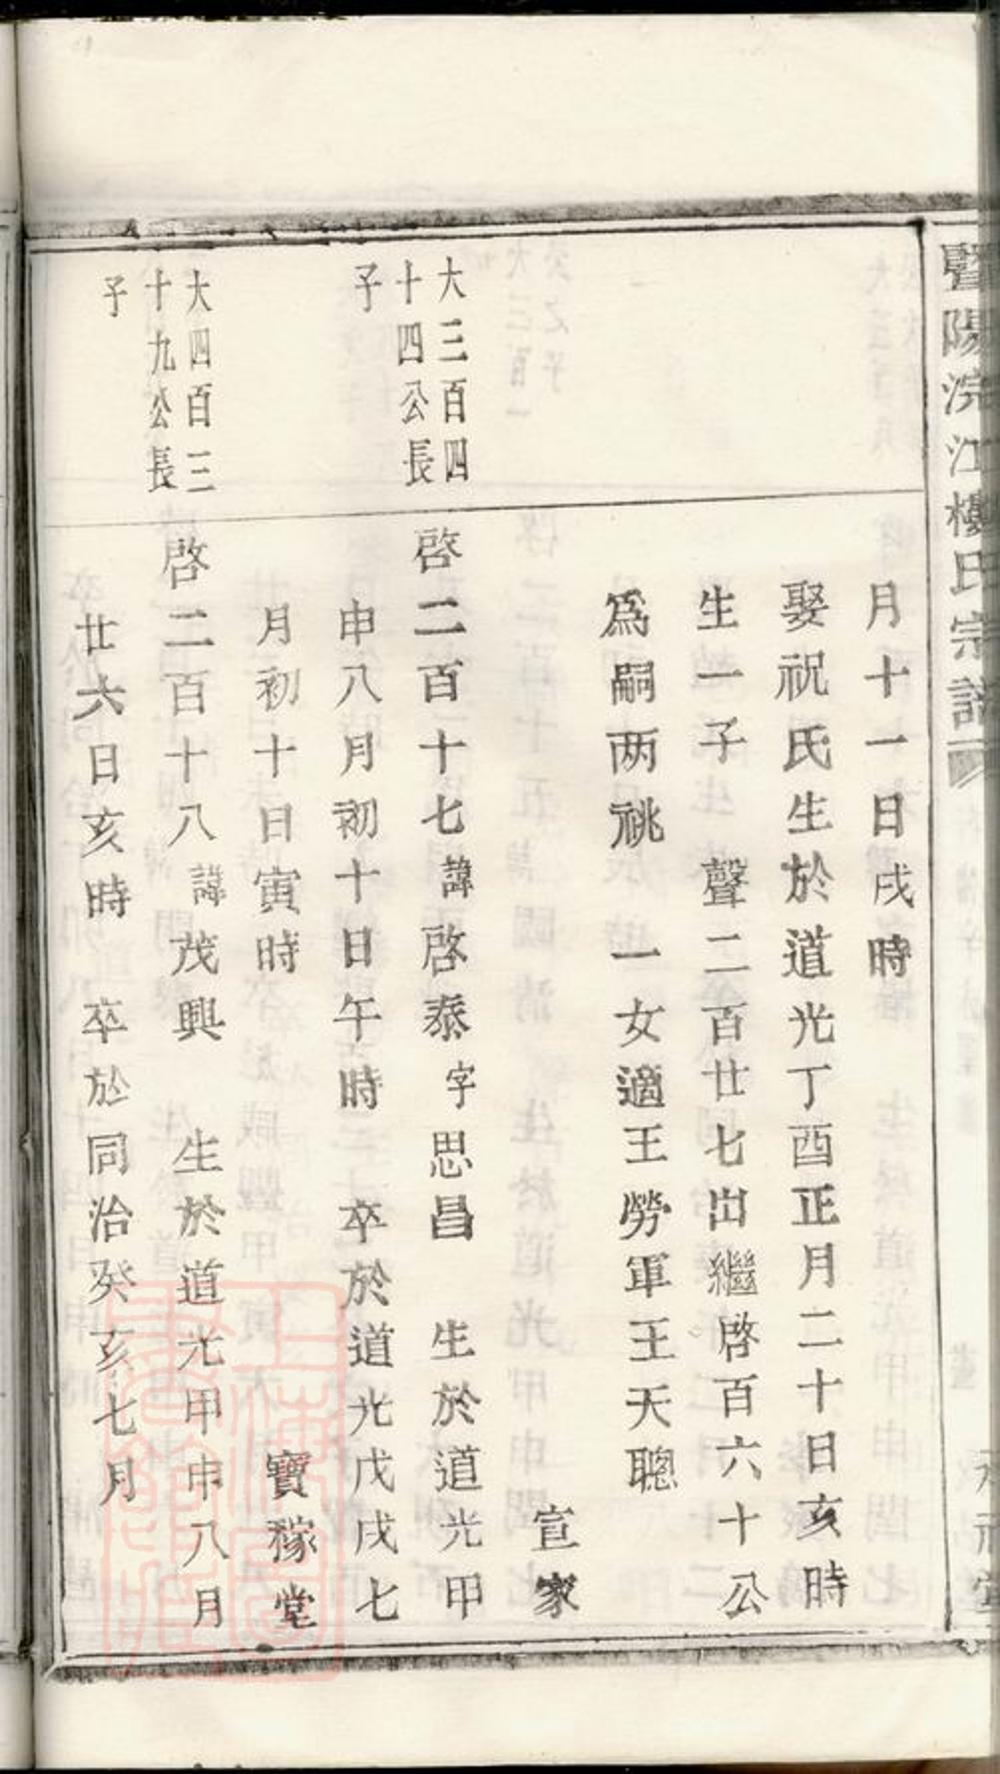 暨陽浣江樓氏宗譜
月十一日戌時
娶祝氏生於道光丁酉正月二十日亥時
生一子　聲二百廿七出繼啓百六十公
為嗣两祧　一女適王勞軍王天聰
宣家
大三百四
十四公長
子
啓二百十七諱啓泰字思昌　生於道光甲
申八月初十日午時　卒於道光戊戌七
月初十日寅時　寶稼堂
大四百三
十九公長
子
啓二百十八諱茂興　生於道光甲申八月
廿六日亥時　卒於同治癸亥七月